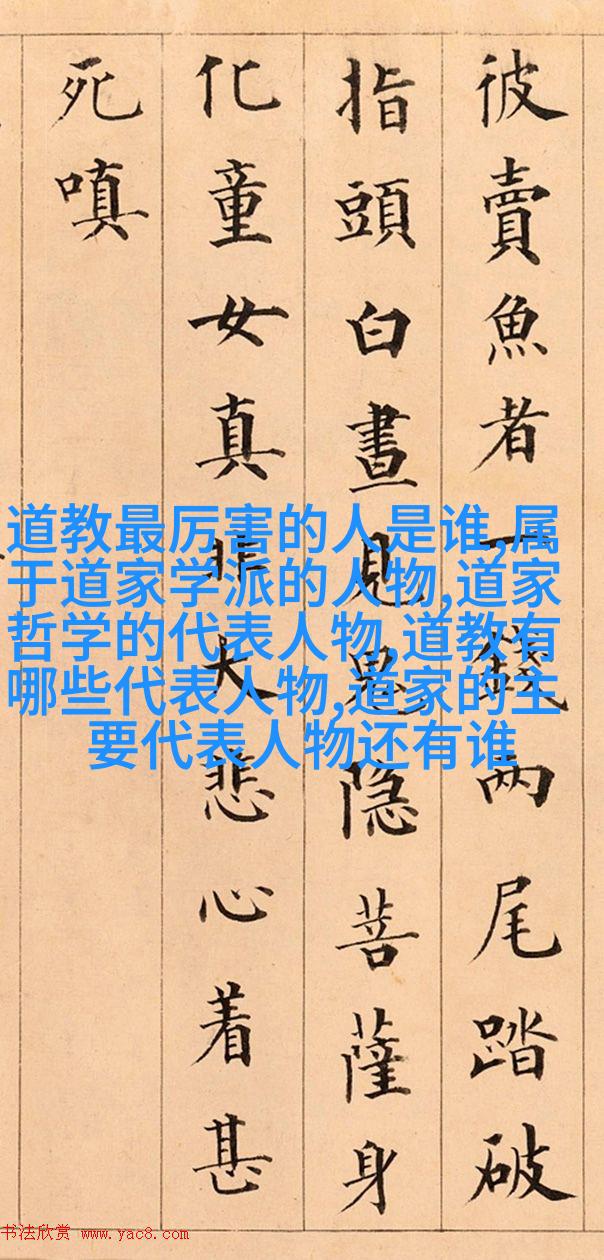 彼賣魚者一錢兩尾踏破
指頭白晝見鬼隐菩薩身
化童女真非大悲心着甚
死嗔
道教最厉害的人是谁,属
于道家学派的人物,道家
哲学的代表人物,道教有
哪些代表人物,道家的主
要代表人物还有谁
书法欣赏 www.yac8.com